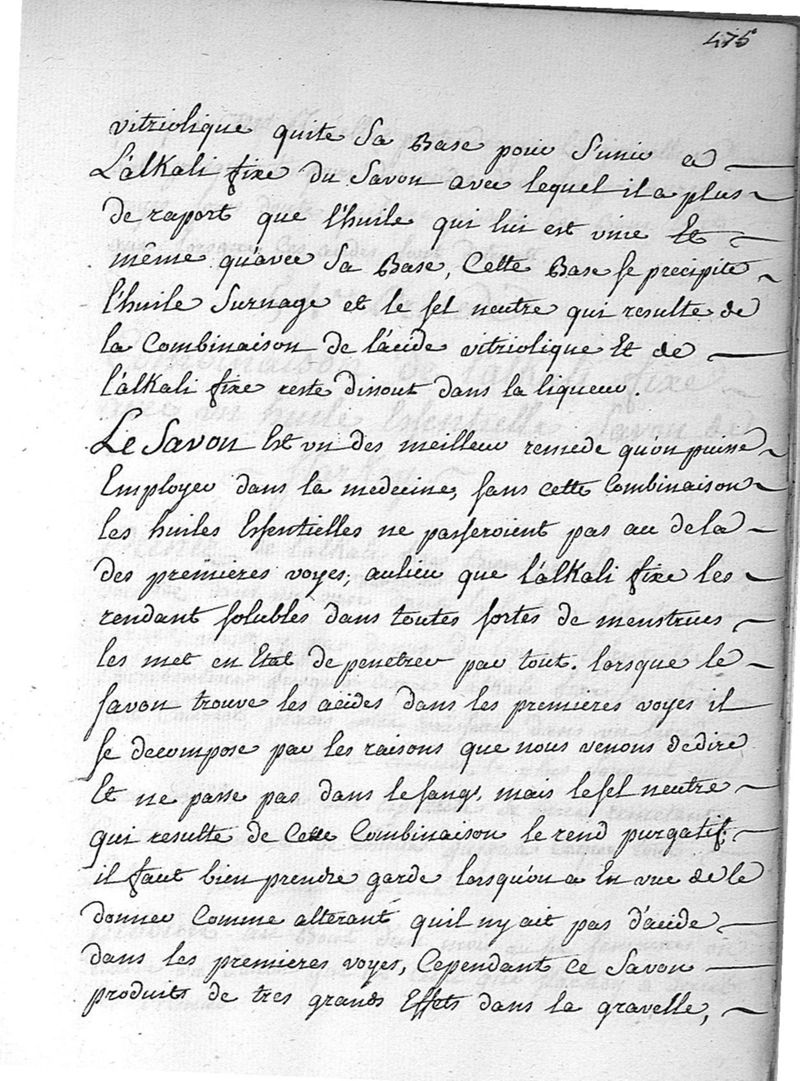 475
vitriolique quite Sa Base pour S'unir a
L'alKali fixe du Savon avec lequel il a plus
de raport que l'huile qui lui est unie Et
même qu'avec Sa Base, Cette Base se precipite,
l'huile Surnage et le sel neutre qui resulte de
la Combinaison de l'acide vitriolique Et de
l'alKali fixe reste dissout dans la liqueur.
Le Savon Est un des meilleur remede qu'on puisse
Employer dans la medecine, sans cette Combinaison
les huiles Essentielles ne passeroient pas au dela
des premieres voyes, aulieu que l'alKali fixe les
rendant solubles dans toutes sortes de menstrues
les met en Etat de penetrer par tout. lorsque le
savon trouve les acides dans les premieres voyes il
se decompose par les raisons que nous venons de dire
Et ne passe pas dans le sang, mais le sel neutre
qui resulte de Cette Combinaison le rend purgatif,
il faut bien prendre garde lorsqu'on a En vue de le
donner Comme alterant qu'il ny ait pas d'acide
dans les premieres voyes, Cependant Ce Savon
produits de tres grands Effets dans la gravelle,